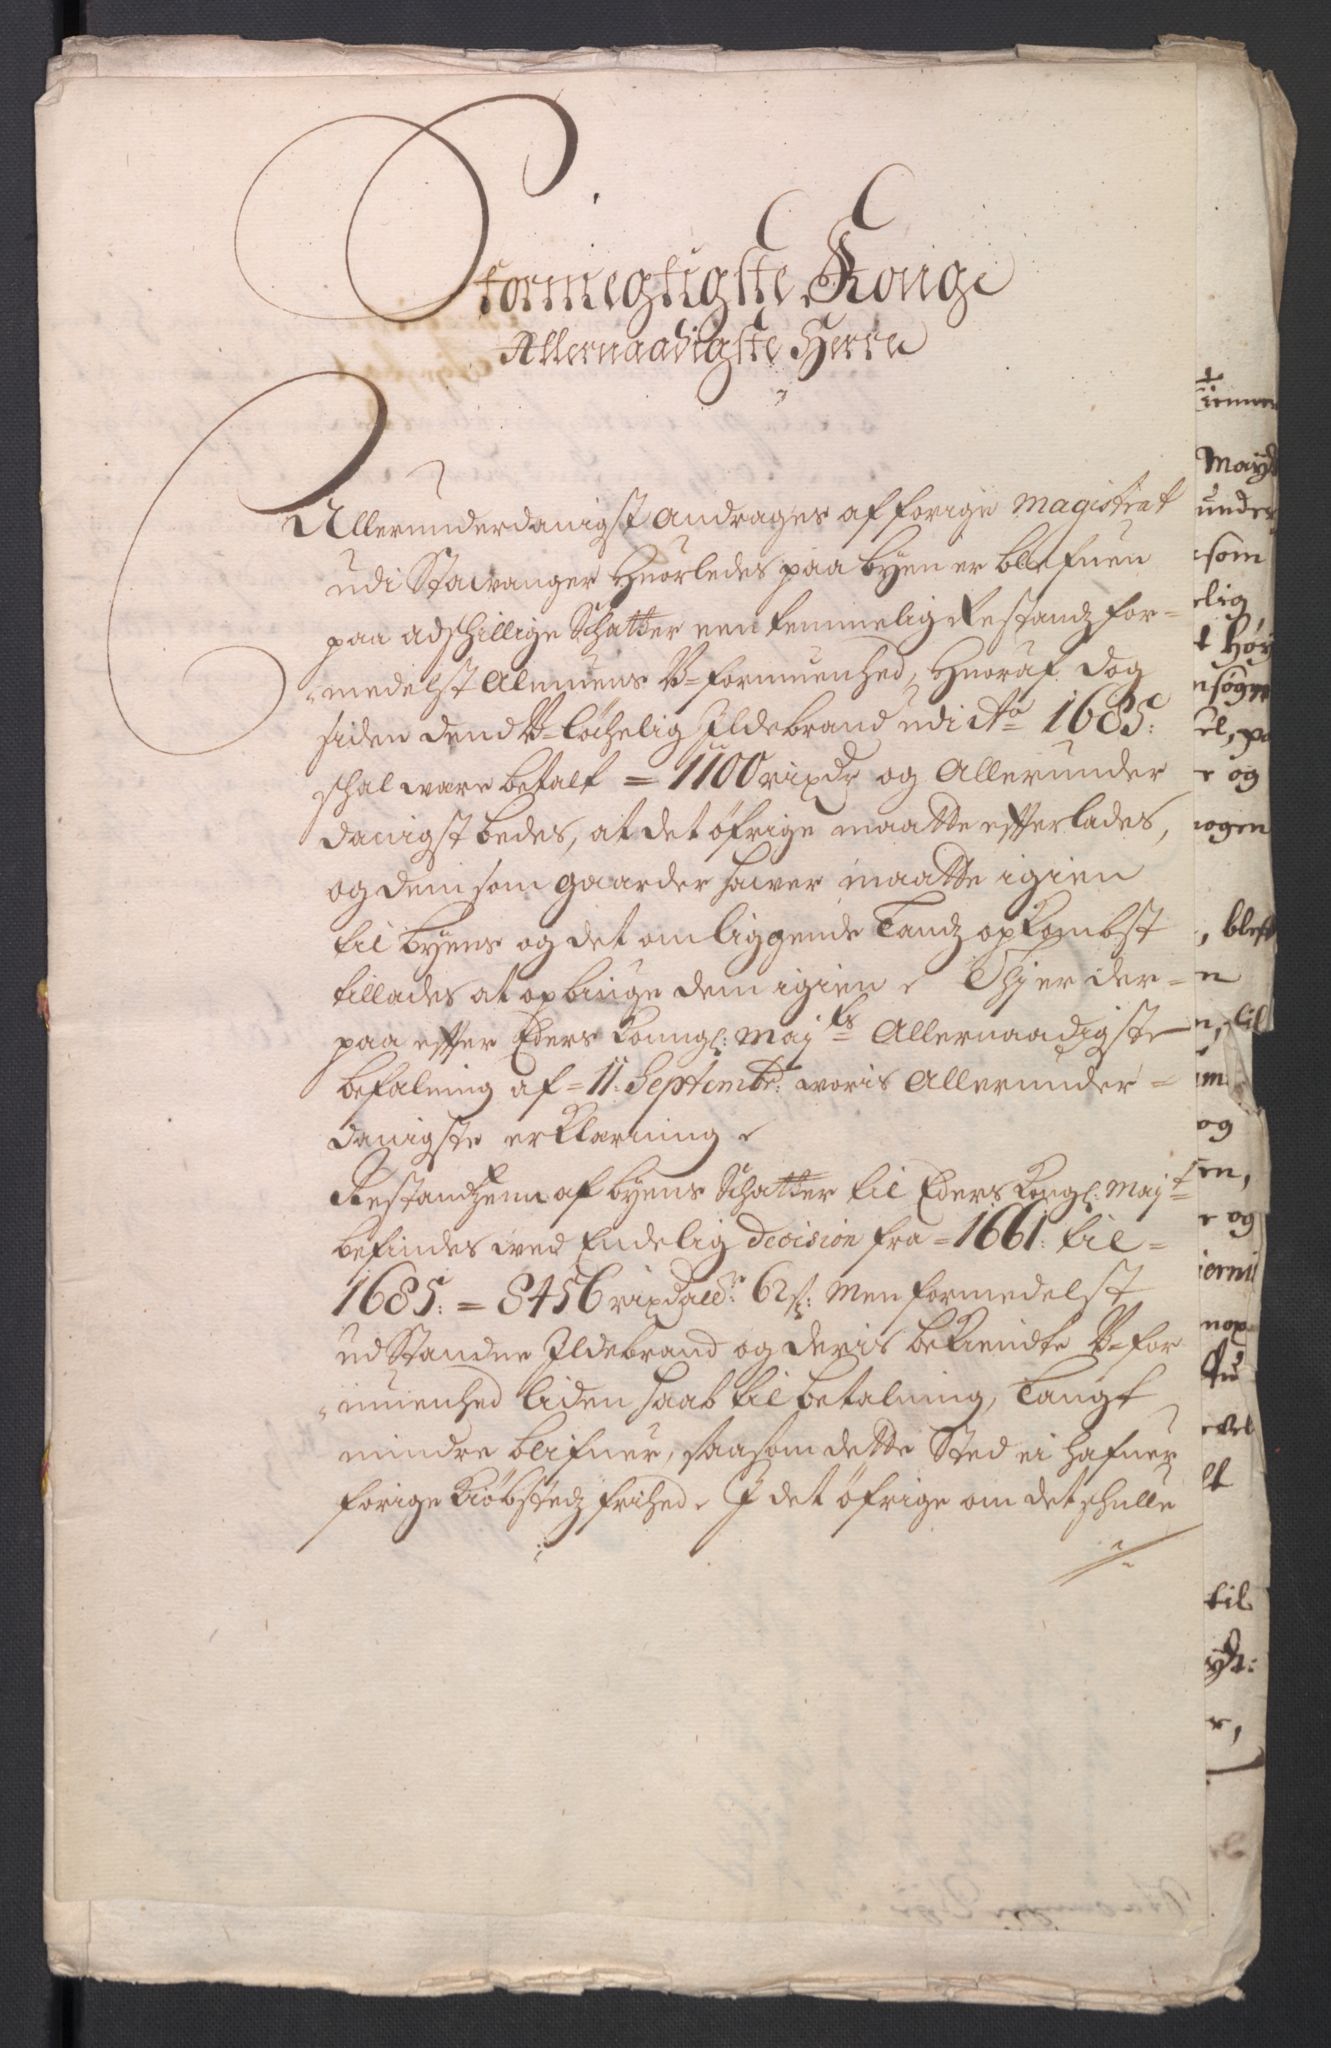 Stormegtigste Kong
Allernaadigste Herre
Allerunderdanigst andrages af forige Magistrat
udi Stawanger Huorledes paa byen er blefuen
paa adschillige Schatter een temmelig Restandz for-
medelst Almuens V-formuenhed, Huoraf dog
siden dend V-löchelig Ildebrand udi Ao 1685:
schal ware betalt = 1100 rixdr og Allerunder
danigst bedes, at det öfrige maatte efterlades,
og dem som gaarder hawer maatte igien
til byens og det omliggende Landz opkombst
tillades at opbiuge dem igien. Thj er der-
paa efter Eders Kongl: Mayts Allernaadigste
befalning af = 11. Septembr: woris Allerunder-
danigste erklæring.
Restandzen af byens Schatter til Eders Kongl: Mayt
befindes wed Endelig decision fra = 1661: til =
1685: = 8456 rixdaldr: 62 s: Men formedelst
udstandne Ildebrand og deris bekiendte V-for
muenhed liden haab til betalning, Langt
mindre blifuer, saasom dette Sted ei hafuer
forige Kiöbstedz frihed. I det öfrige om det schulle
til
og
som
elig
under
nogen
en,
til